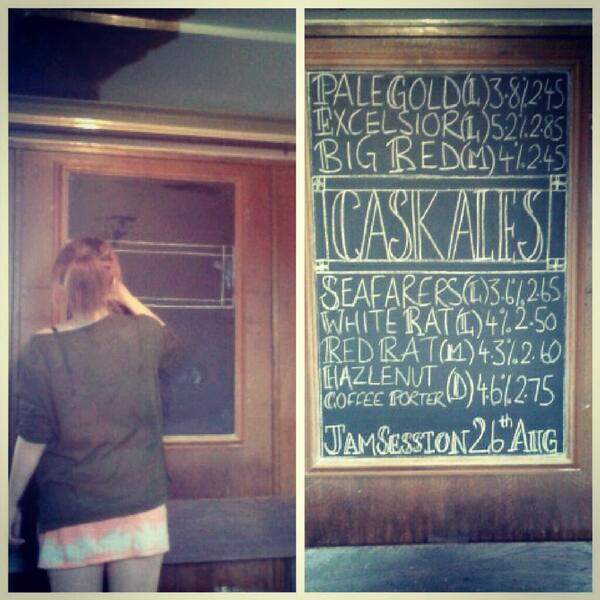 PALE GOLD (L) 3.8% 2.45
EXCELSIOR (L) 5.2% 2.85
BIG RED (M) 4% 2.45
CASK ALES
SEAFARERS (L) 3.6% 2.65
WHITE RAT (L) 4% 2.50
RED RAT (M) 4.3% 2.60
HAZLENUT
COFFEE PORTER (D) 4.6% 2.75
JAM SESSION 26th AUG